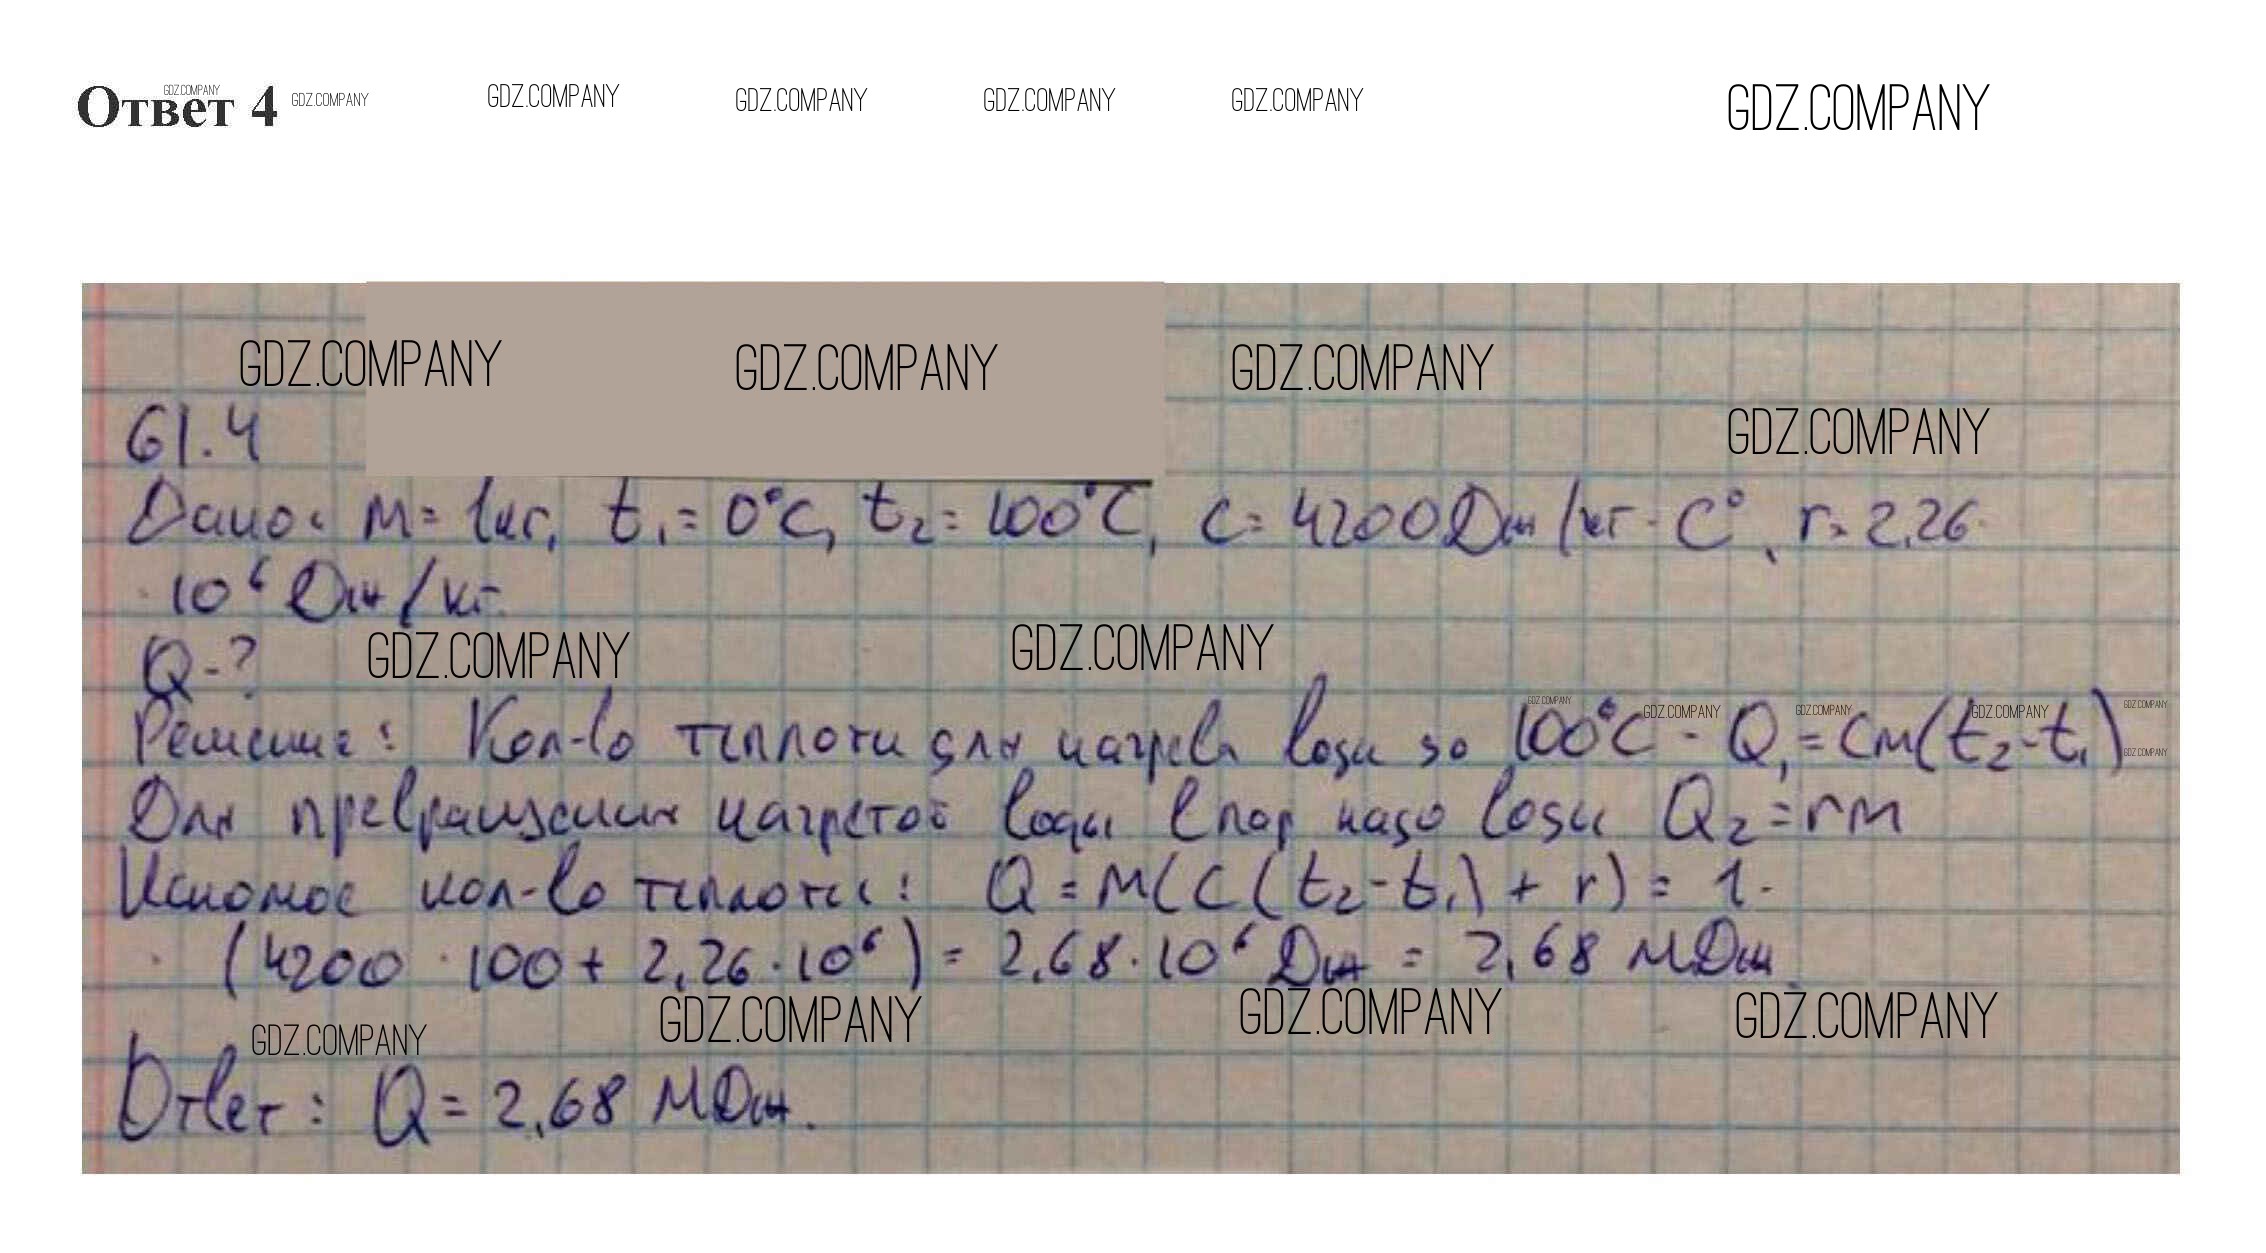 Ответ 4 GDZ.COMPANY GDZ.COMPANY GDZ.COMPANY GDZ.COMPANY GDZ.COMPANY GDZ.COMPANY GDZ.COMPANY
GDZ.COMPANY GDZ.COMPANY GDZ.COMPANY
GDZ.COMPANY
61.4
Дано: m = 1кг, t₁ = 0°C, t₂ = 100°C, c = 4200Дж/кг · C°, r = 2,26
· 10⁶ Дж/кг.
Q - ?
GDZ.COMPANY GDZ.COMPANY
GDZ.COMPANY GDZ.COMPANY GDZ.COMPANY GDZ.COMPANY GDZ.COMPANY
Решение: Кол-во теплоты для нагрева воды до 100°C - Q₁ = cm(t₂-t₁)
GDZ.COMPANY
Для превращения нагретой воды в пар надо воды Q₂ = rm
Искомое кол-во теплоты: Q = m(c(t₂-t₁) + r) = 1·
· (4200 · 100 + 2,26 · 10⁶) = 2,68 · 10⁶ Дж = 2,68 МДж.
GDZ.COMPANY GDZ.COMPANY GDZ.COMPANY GDZ.COMPANY
Ответ: Q = 2,68 МДж.